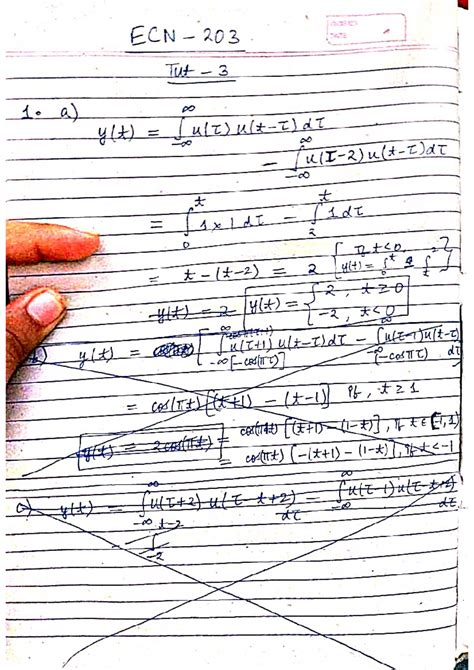 ECN - 203
Tut - 3
1. a)
y(t) = ∫_{-∞}^{∞} u(τ) u(t-τ) dτ
- ∫_{-∞}^{∞} u(τ-2) u(t-τ) dτ
= ∫_0^t 1×1 dτ - ∫_2^t 1 dτ
= t - (t-2) = 2 { If t<0, y(t) =
y(t) = 2 y(t) = { 2, t ≥ 0
-2, t < 0
y(t) = [ ∫_{-∞}^{∞} u(τ+1) u(t-τ) dτ - ∫_{-∞}^{∞} u(τ-1) u(t-τ)
[-cos(πτ)] [-cosπτ) dτ
= cos(πt) [(t+1) - (t-1)] If, t ≥ 1
y(t) = 2cos(πt) = cos(πt) [(t+1) - (1-t)], If t ∈ [-1,1)
= cos(πt) [-(t+1) - (1-t)], If t < -1
c) y(t) = ∫_{-∞}^{∞} u(τ+2) u(τ-t+2) dτ = ∫_{-∞}^{∞} u(τ-1) u(τ-t+2) dτ
t-2
∫
-2